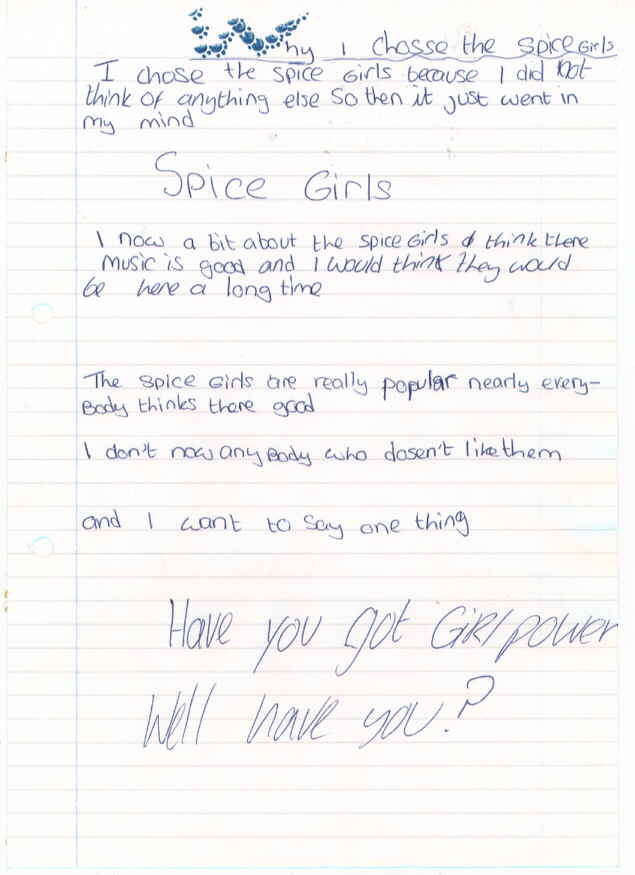 Why I Chosse the Spice Girls
I chose the Spice Girls because I did not
think of anything else So then it just went in
my mind
Spice Girls
I now a bit about the Spice Girls & think there
music is good and I would think they would
be here a long time
The Spice Girls are really popular nearly every-
Body thinks there good
I don't now any Body who dosen't like them
and I want to say one thing
Have you got Girl power
Well have you?